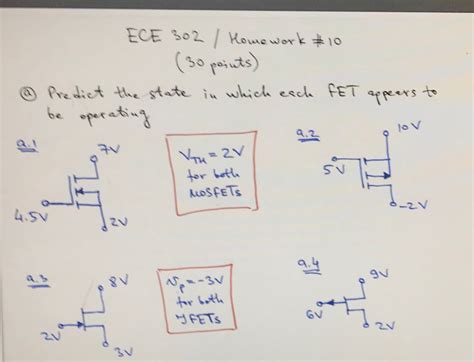 ECE 302 / Homework #10
(30 points)
ⓐ Predict the state in which each FET appears to
be operating
a.1
7V
4.5V
2V
VTH = 2V
for both
MOSFETs
a.2
10V
5V
-2V
a.3
8V
2V
3V
Vp = -3V
for both
JFETs
a.4
9V
6V
2V